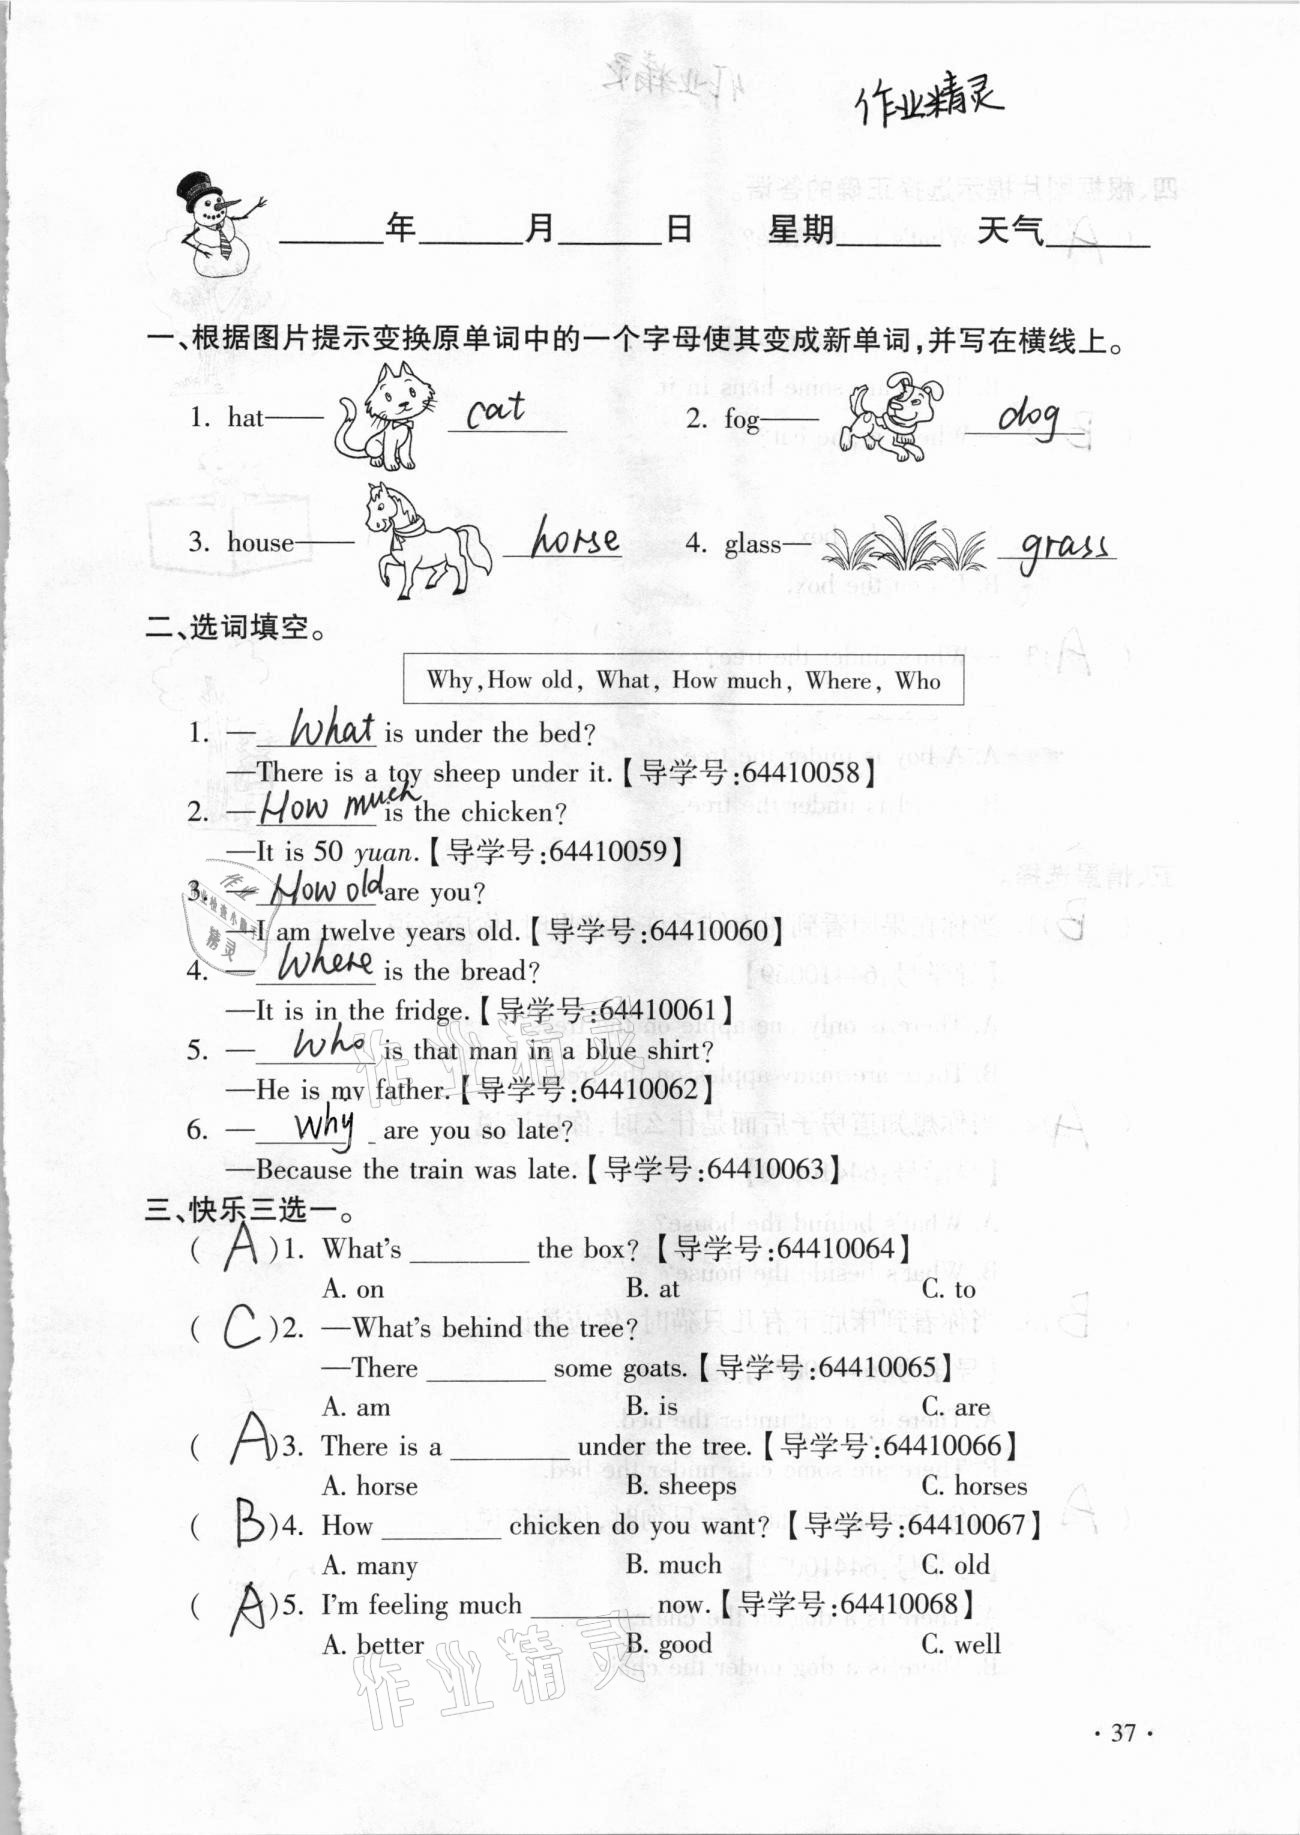 作业精灵
____年____月____日 星期____ 天气____
一、根据图片提示变换原单词中的一个字母使其变成新单词,并写在横线上。
1. hat—— cat 2. fog—— dog
3. house—— horse 4. glass— grass
二、选词填空。
Why, How old, What, How much, Where, Who
1. — What is under the bed?
—There is a toy sheep under it.【导学号:64410058】
2. — How much is the chicken?
—It is 50 yuan.【导学号:64410059】
3. — How old are you?
—I am twelve years old.【导学号:64410060】
4. — Where is the bread?
—It is in the fridge.【导学号:64410061】
5. — Who is that man in a blue shirt?
—He is my father.【导学号:64410062】
6. — Why are you so late?
—Because the train was late.【导学号:64410063】
三、快乐三选一。
( A )1. What's ________ the box?【导学号:64410064】
A. on B. at C. to
( C )2. —What's behind the tree?
—There ________ some goats.【导学号:64410065】
A. am B. is C. are
( A )3. There is a ________ under the tree.【导学号:64410066】
A. horse B. sheeps C. horses
( B )4. How ________ chicken do you want?【导学号:64410067】
A. many B. much C. old
( A )5. I'm feeling much ________ now.【导学号:64410068】
A. better B. good C. well
作业精灵
· 37 ·